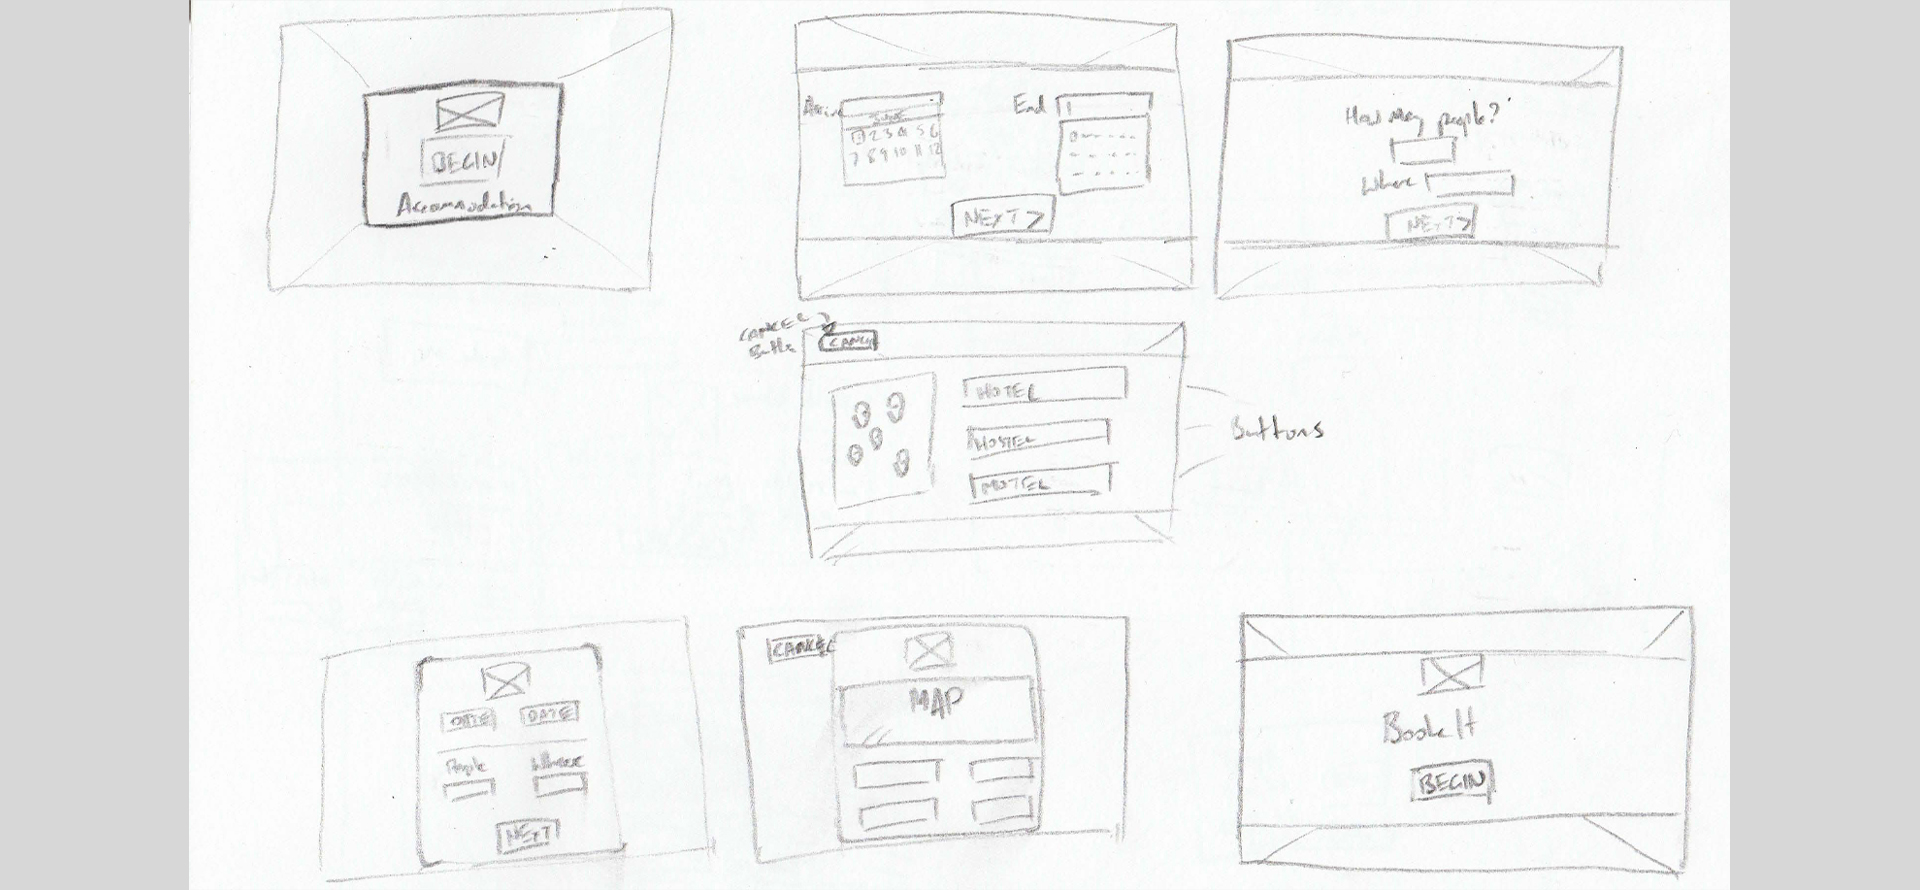 BEGIN
Accomodation
Arrive
1 2 3 4 5 6
7 8 9 10 11 12
End
NEXT >
How Many people?
Where
NEXT >
CANCEL
Button
HOTEL
HOSTEL
MOTEL
Buttons
DATE DATE
People Where
NEXT
CANCEL
MAP
Book It
BEGIN